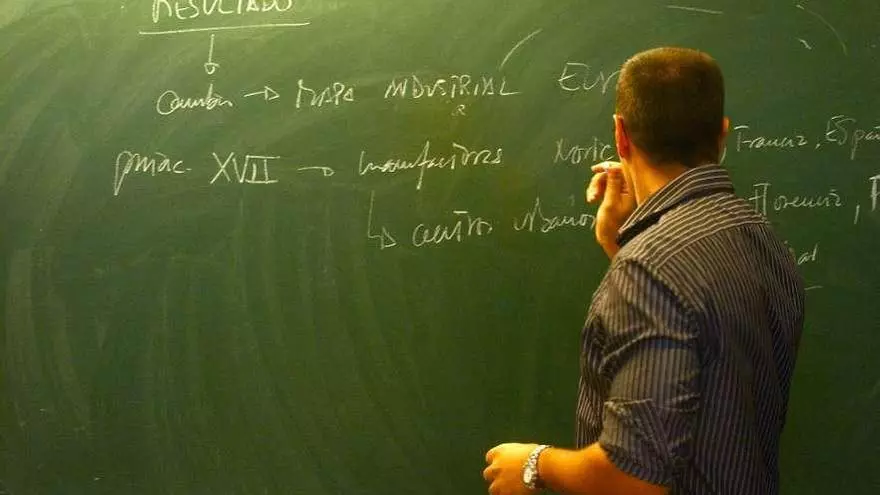 RESULTADO
Cambio → MAPA INDUSTRIAL Eur
princ. XVII → manufacturas Francia, España
↳ centros Florencia,